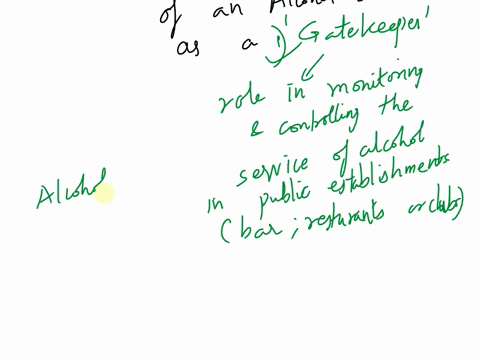 of an Alcohol
as a 'Gatekeeper'
role in monitoring
& controlling the
service of alcohol
in public establishments
(bar ; resturants or clubs)
Alcohol